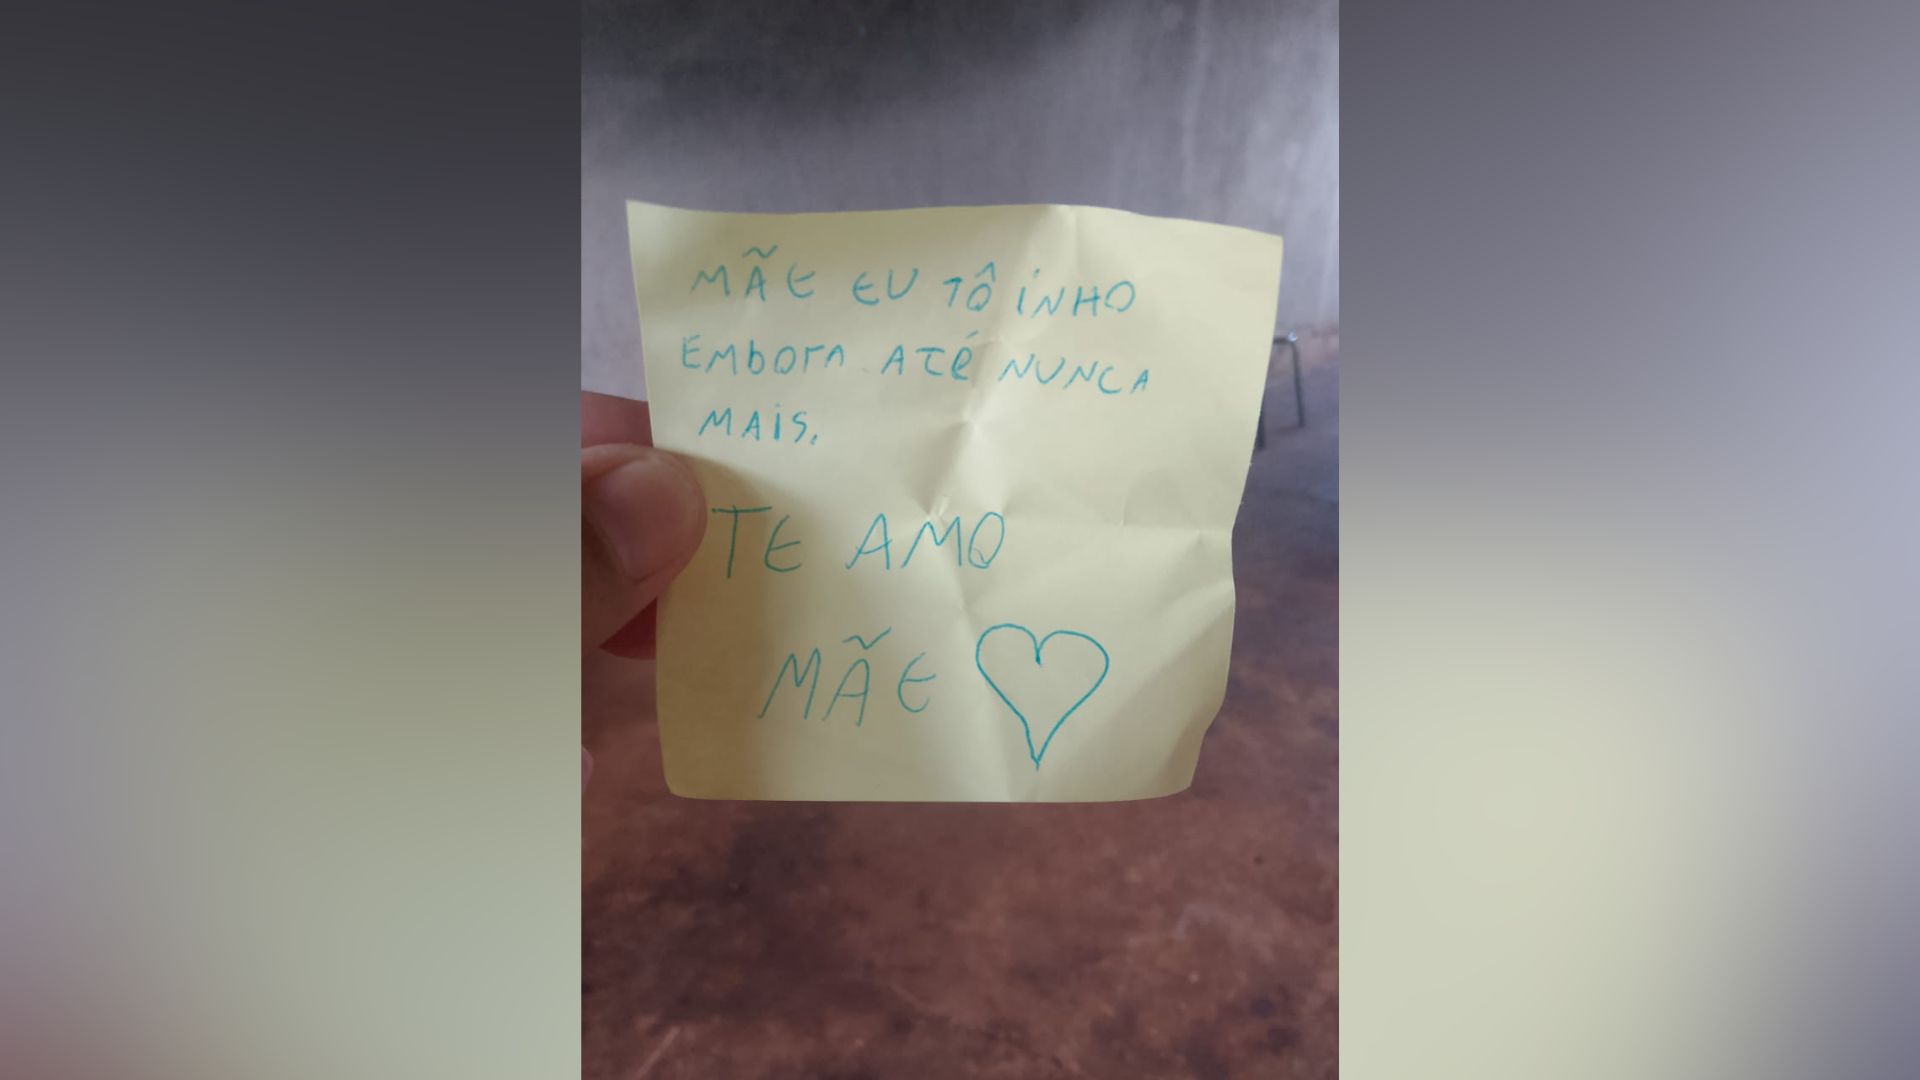 MÃE EU TÔ INHO
EMBORA ATÉ NUNCA
MAIS.
TE AMO
MÃE